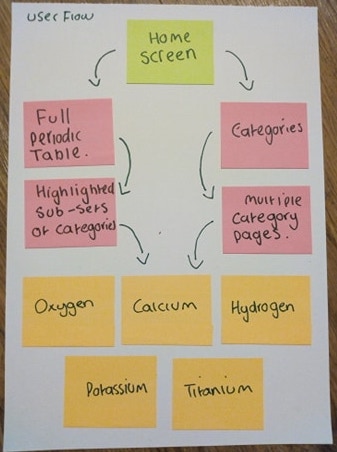 User Flow
Home
Screen
Full
Periodic
Table.
Categories
Highlighted
Sub-Sets
of Categories
Multiple
Category
pages.
Oxygen
Calcium
Hydrogen
Potassium
Titanium